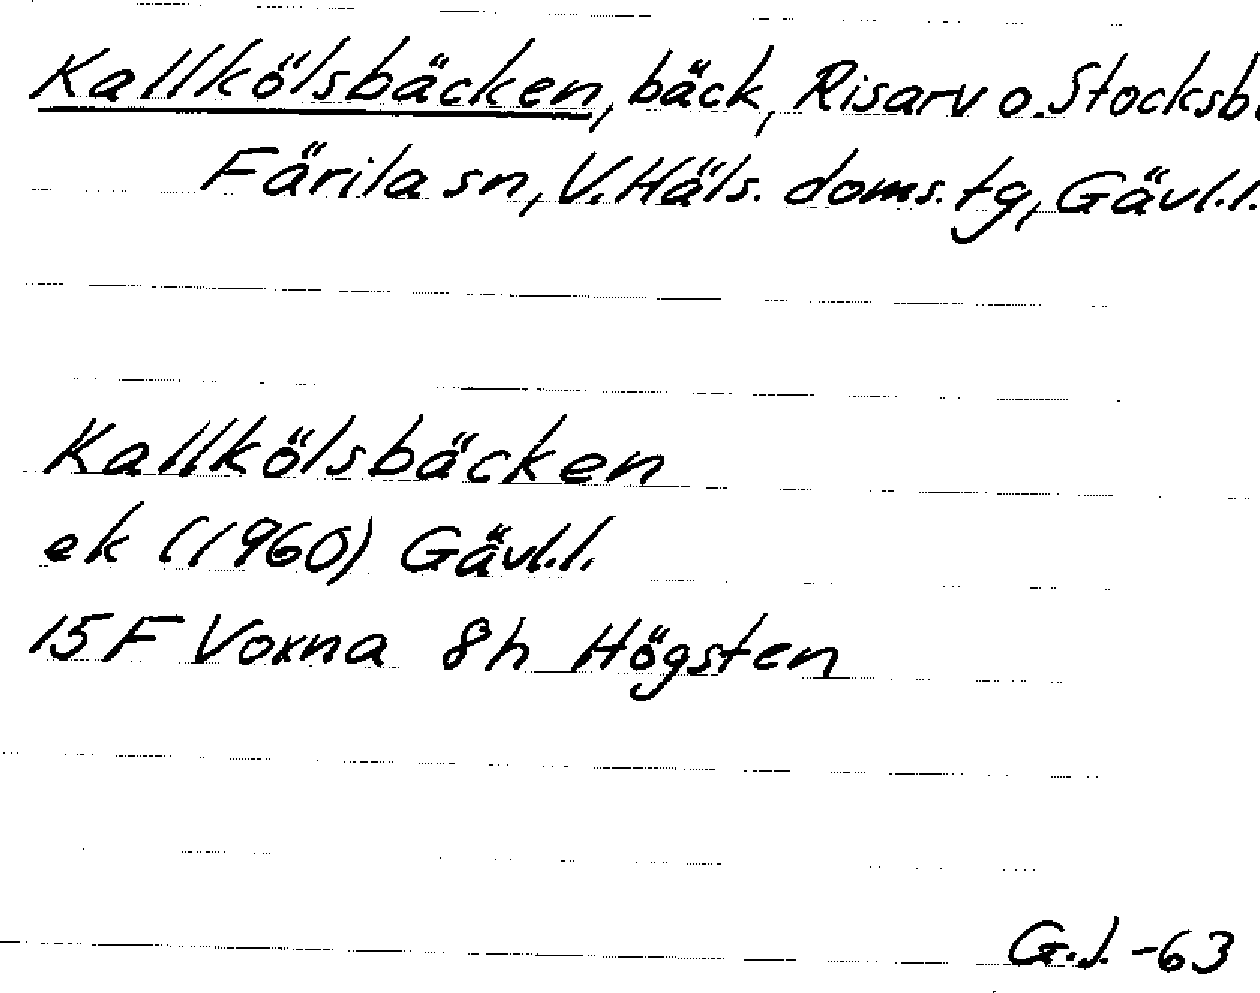 Kallkölsbäcken, bäck, Risarv o. Stocksb
Färila sn, V. Häls. doms. tg, Gävl.l.
Kallkölsbäcken
ek (1960) Gävl.l.
15F Voxna 8h Högsten
G.J. -63